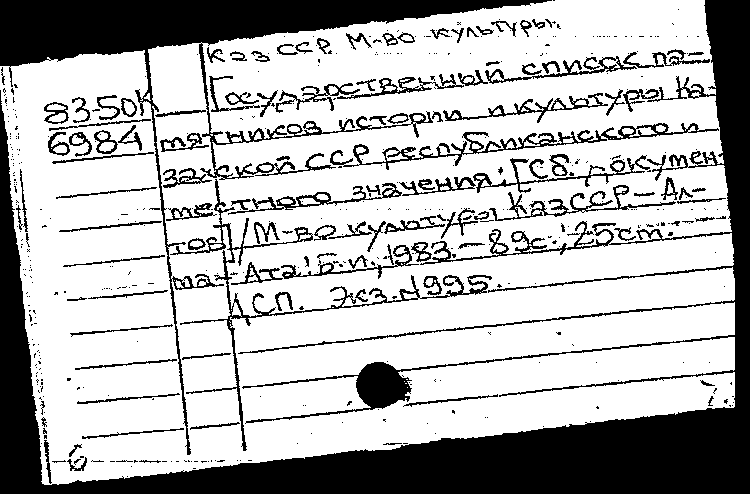 КазССР. М-во культуры.
83-50К Государственный список па-
6984 мятников истории и культуры Ка-
захской ССР республиканского и
местного значения: [Сб. докумен-
тов] / М-во культуры КазССР.- Ал-
ма-Ата: Б.и., 1983.- 89с.; 25см.
ДСП. Экз.№995.
6
7.